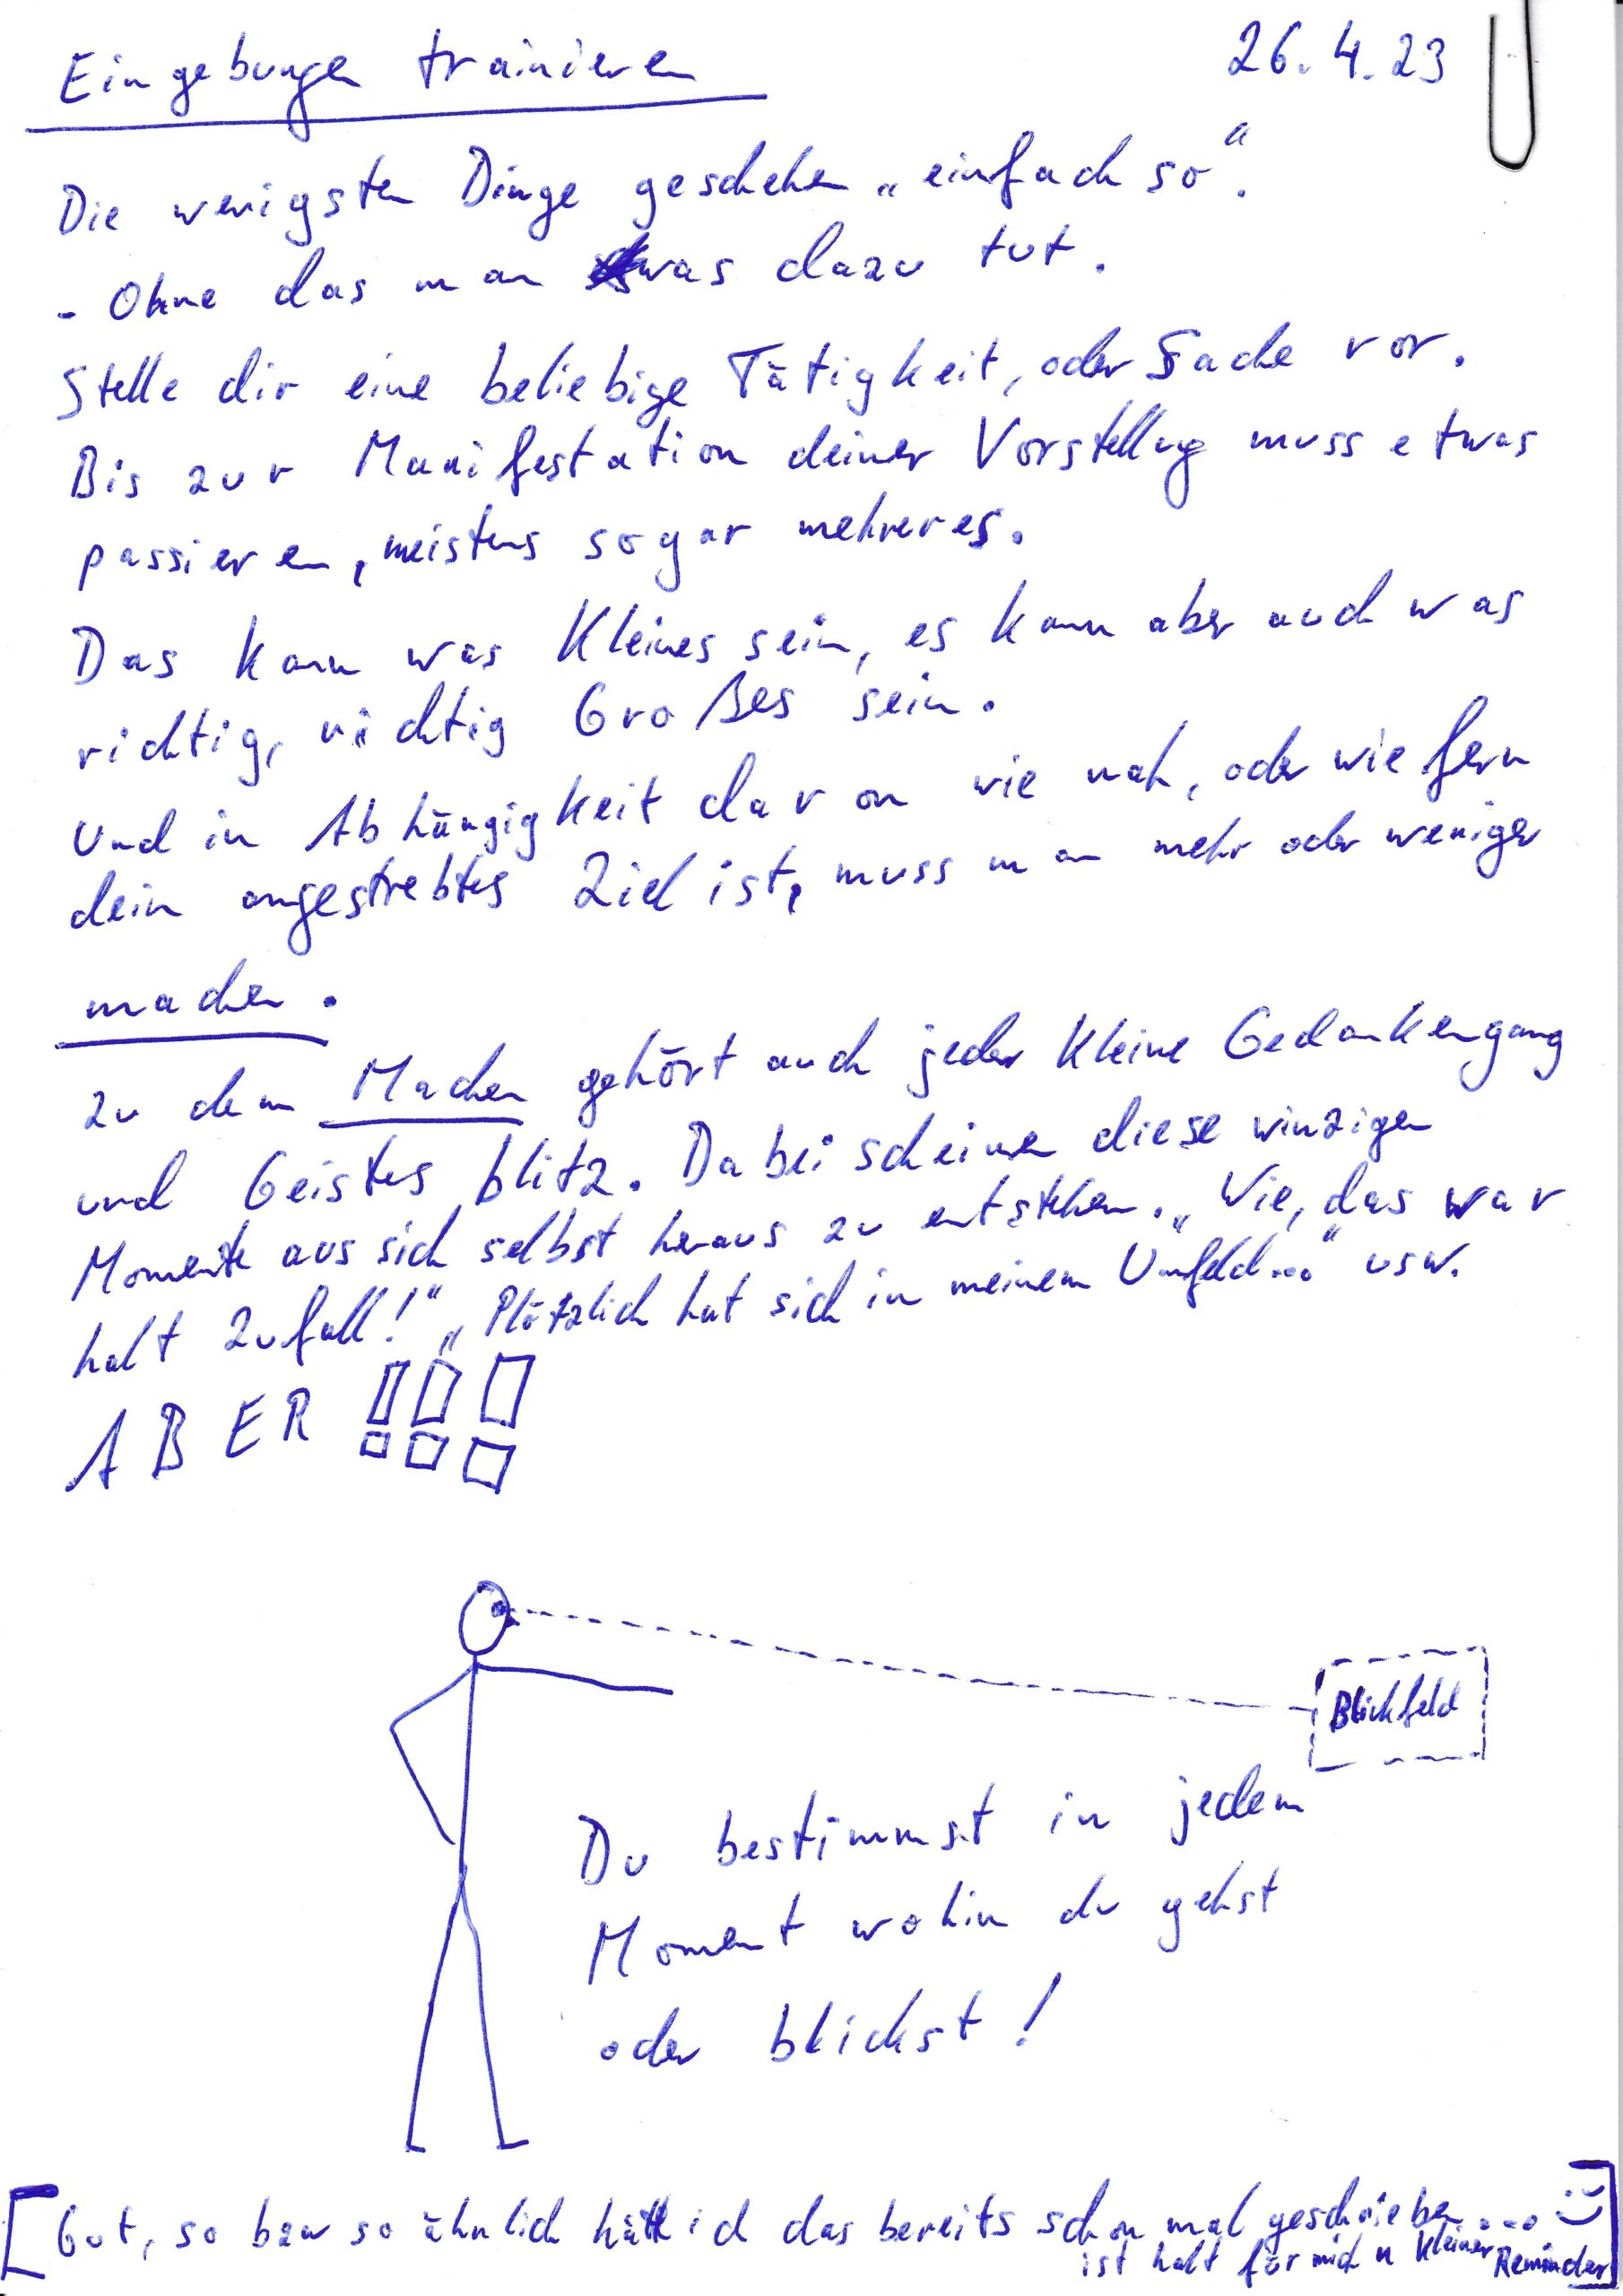 Eingebungen trainieren
26.4.23
Die wenigsten Dinge geschehen „einfach so“.
- Ohne das man was dazu tut.
Stelle dir eine beliebige Tätigkeit, oder Sache vor.
Bis zur Manifestation deiner Vorstellung muss etwas
passieren, meistens sogar mehreres.
Das kann was Kleines sein, es kann aber auch was
richtig, richtig Großes sein.
Und in Abhängigkeit davon wie nah, oder wie fern
dein angestrebtes Ziel ist, muss man mehr oder weniger
machen.
Zu dem Machen gehört auch jeder kleine Gedankengang
und Geistesblitz. Dabei scheinen diese winzigen
Momente aus sich selbst heraus zu entstehen. „Wie, das war
halt Zufall!“ „Plötzlich hat sich in meinem Umfeld...“ usw.
ABER !!!
Blickfeld
Du bestimmst in jedem
Moment wohin du gehst
oder blickst!
[Gut, so bzw so ähnlich hätte ich das bereits schon mal geschrieben... :)
ist halt für mich n kleiner Reminder]